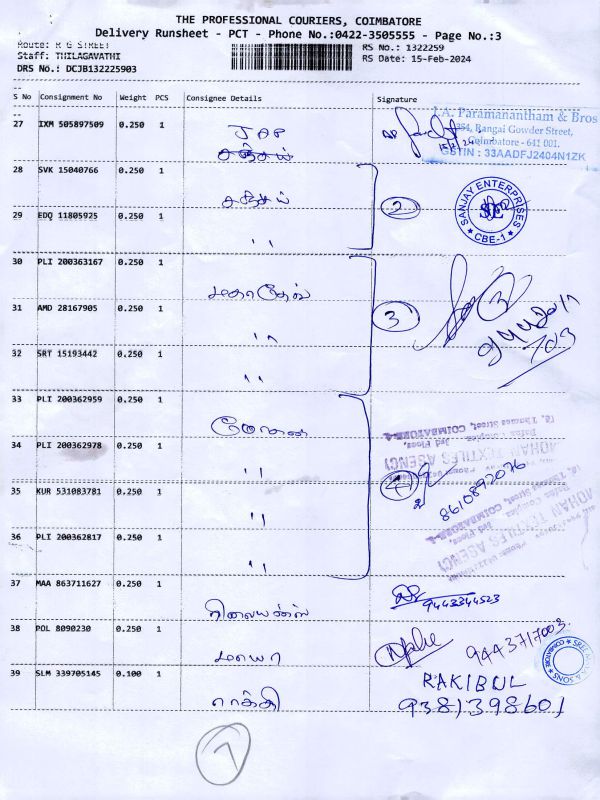 THE PROFESSIONAL COURIERS, COIMBATORE
Delivery Runsheet - PCT - Phone No.:0422-3505555 - Page No.:3
Route: R G STREET
Staff: THILAGAVATHI
DRS No.: DCJB132225903
RS No.: 1322259
RS Date: 15-Feb-2024
S No Consignment No Weight PCS Consignee Details Signature
27 IXM 505897509 0.250 1 JAP
சஞ்சய்
J.A. Paramanantham & Bros
364, Rangai Gowder Street,
Coimbatore - 641 001.
GSTIN : 33AADFJ2404N1ZK
28 SVK 15040766 0.250 1
சஞ்சய்
2
SANJAY ENTERPRISES
CBE-1
29 EDQ 11805925 0.250 1
"
30 PLI 200363167 0.250 1
மகாதேவ்
31 AMD 28167905 0.250 1
"
3
32 SRT 15193442 0.250 1
"
33 PLI 200362959 0.250 1
மோகன்
34 PLI 200362978 0.250 1
"
4
8610892076
MOHAN TEXTILES AGENCY
3rd Floor,
78, Thomas Street, COIMBATORE-1
35 KUR 531083781 0.250 1
"
36 PLI 200362817 0.250 1
"
37 MAA 863711627 0.250 1
ரிலையன்ஸ்
9443344523
38 POL 8090230 0.250 1
மாயா
9443717003.
39 SLM 339705145 0.100 1
ராக்கி
RAKIBUL
9381398601
7